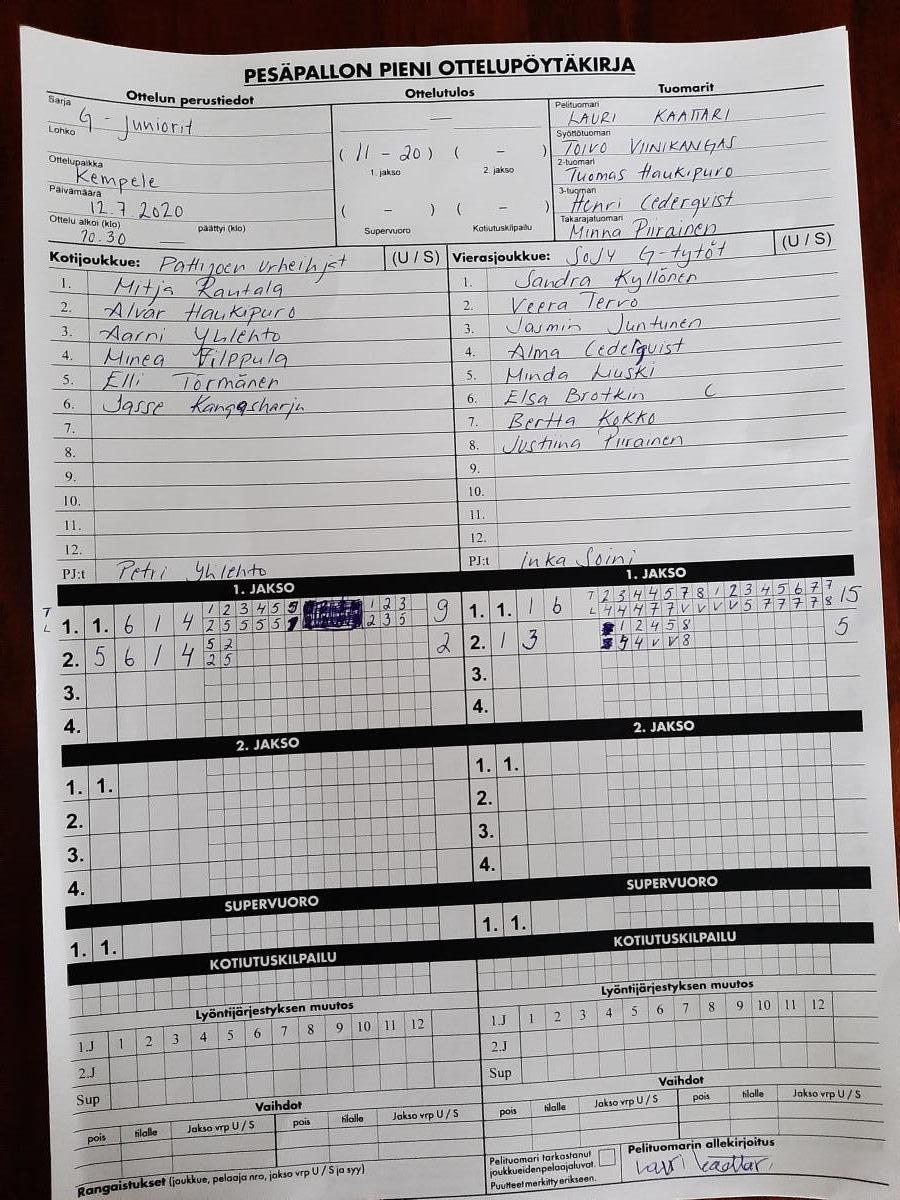 PESÄPALLON PIENI OTTELUPÖYTÄKIRJA
Ottelun perustiedot
Sarja G - Juniorit
Lohko
Ottelupaikka
Kempele
Päivämäärä
12.7.2020
Ottelu alkoi (klo) päättyi (klo)
10.30 —
Ottelutulos
—
( 11 - 20 ) ( - )
1. jakso 2. jakso
( - ) ( - )
Supervuoro Kotiutuskilpailu
Tuomarit
Pelituomari
LAURI KAATTARI
Syöttötuomari
TOIVO VIINIKANGAS
2-tuomari
Tuomas Haukipuro
3-tuomari
Henri Cederqvist
Takarajatuomari
Minna Piirainen
Kotijoukkue: Pattijoen Urheilijat (U / S)
1. Mitja Rautala
2. Alvar Haukipuro
3. Aarni Yhlehto
4. Minea Filppula
5. Elli Törmänen
6. Jasse Kangasharju
7.
8.
9.
10.
11.
12.
PJ:t Petri Yhlehto
Vierasjoukkue: SoJy G-tytöt (U / S)
1. Sandra Kyllönen
2. Veera Tervo
3. Jasmin Juntunen
4. Alma Cederqvist
5. Minda Liuski
6. Elsa Brotkin C
7. Bertta Kokko
8. Justiina Piirainen
9.
10.
11.
12.
PJ:t Inka Soini
1. JAKSO
T 1 2 3 4 5 5 1 2 3
L 1. 1. 6 1 4 2 5 5 5 5 1 2 3 5 9
2. 5 6 1 4 5 2 2
2 5
3.
4.
1. JAKSO
T 2 3 4 4 5 7 8 1 2 3 4 5 6 7 7
1. 1. 1 6 L 4 4 4 7 7 V V V V 5 7 7 7 7 8 15
2. 1 3 1 2 4 5 8 5
5 4 V V 8
3.
4.
2. JAKSO
1. 1.
2.
3.
4.
2. JAKSO
1. 1.
2.
3.
4.
SUPERVUORO
1. 1.
SUPERVUORO
1. 1.
KOTIUTUSKILPAILU
KOTIUTUSKILPAILU
Lyöntijärjestyksen muutos
1.J 1 2 3 4 5 6 7 8 9 10 11 12
2.J
Sup
Lyöntijärjestyksen muutos
1.J 1 2 3 4 5 6 7 8 9 10 11 12
2.J
Sup
Vaihdot
pois tilalle Jakso vrp U / S pois tilalle Jakso vrp U / S
Vaihdot
pois tilalle Jakso vrp U / S pois tilalle Jakso vrp U / S
Rangaistukset (joukkue, pelaaja nro, jakso vrp U / S ja syy)
Pelituomari tarkastanut
joukkueidenpelaajaluvat.
Puutteet merkitty erikseen.
Pelituomarin allekirjoitus
Lauri Kaattari